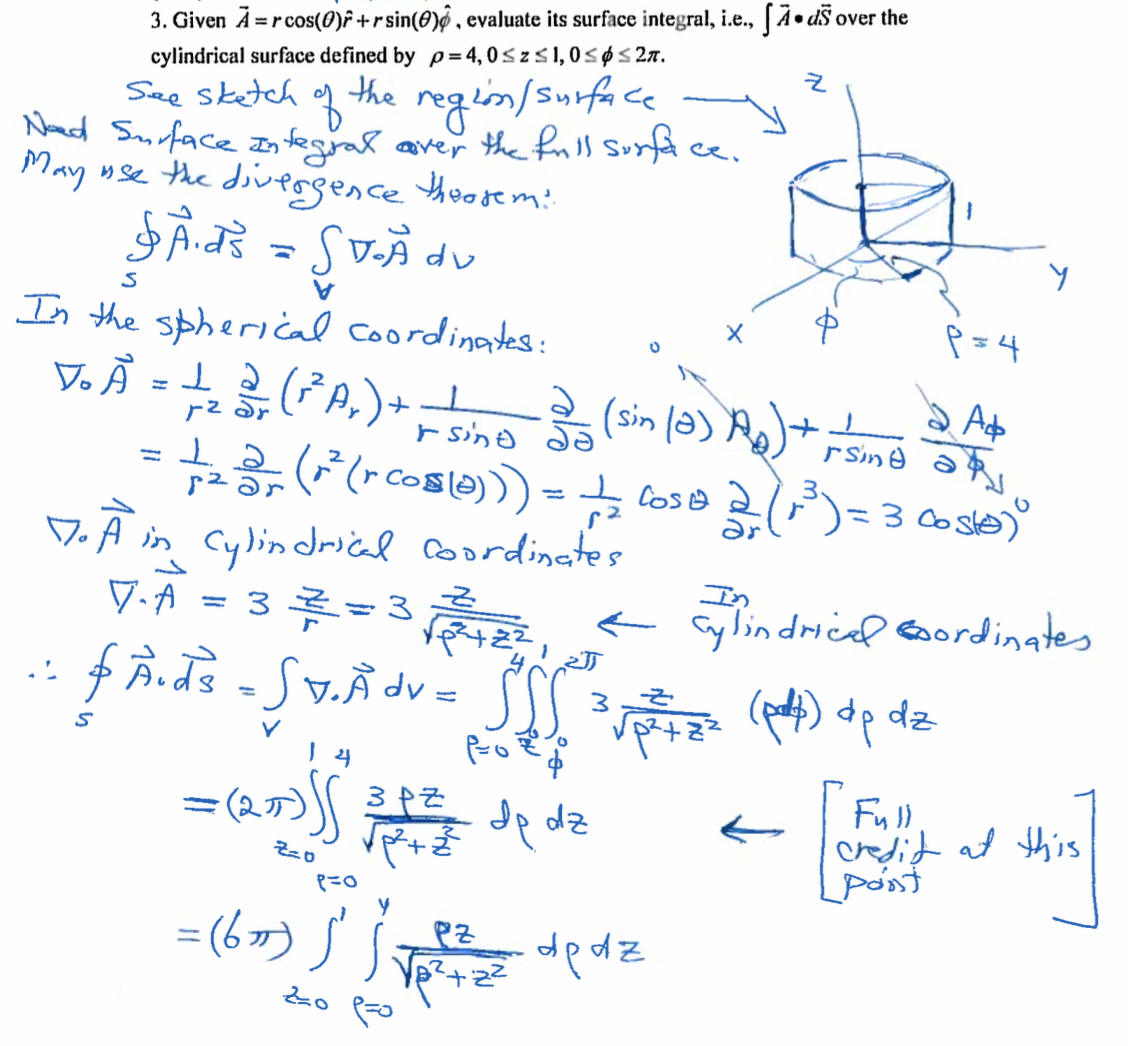 3. Given A⃗ = r cos(θ)r̂ + r sin(θ)φ̂ , evaluate its surface integral, i.e., ∫ A⃗ • dS⃗ over the
cylindrical surface defined by ρ = 4, 0 ≤ z ≤ 1, 0 ≤ φ ≤ 2π.
See sketch of the region/surface →
Need Surface Integral over the full surface.
May use the divergence theorem:
∮_S A⃗.ds⃗ = ∫_V ∇.A⃗ dv
z
1
y
x
φ
ρ = 4
In the spherical coordinates:
∇.A⃗ = 1/r² ∂/∂r (r² A_r) + 1/(r sinθ) ∂/∂θ (sin(θ) A_θ) → 0 + 1/(r sinθ) ∂A_φ/∂φ → 0
= 1/r² ∂/∂r (r²(r cos(θ))) = 1/r² cosθ ∂/∂r (r³) = 3 cos(θ)
∇.A⃗ in cylindrical coordinates
∇.A⃗ = 3 z/r = 3 z/√(ρ²+z²) ← In cylindrical coordinates
∴ ∮_S A⃗.ds⃗ = ∫_V ∇.A⃗ dv = ∫_{ρ=0}^{4} ∫_{z=0}^{1} ∫_{φ=0}^{2π} 3 z/√(ρ²+z²) (ρdφ) dρ dz
= (2π) ∫_{z=0}^{1} ∫_{ρ=0}^{4} 3ρz/√(ρ²+z²) dρ dz ← [Full credit at this point]
= (6π) ∫_{z=0}^{1} ∫_{ρ=0}^{4} ρz/√(ρ²+z²) dρ dz